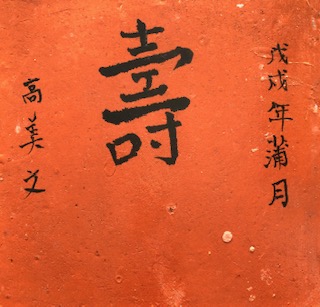 戊戌年蒲月
壽
高美文